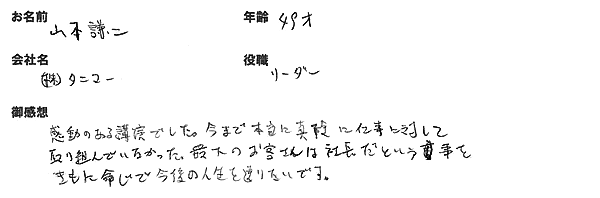 お名前 山本謙二
年齢 49才
会社名 ㈱タニコー
役職 リーダー
御感想
感動のある講演でした。今まで本当に真殿に仕事に対して
取り組んでいなかった。最大のお客さんは社長だという事を
きもに命じて今後の人生を送りたいです。